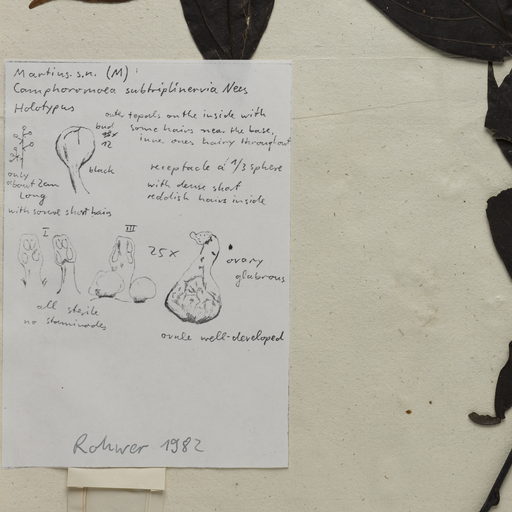 Martius. s.n. (M)
Camphoromoea subtriplinervia Nees
Holotypus
outer tepals on the inside with
some hairs near the base,
inner ones hairy throughout
bud
12
black
only
about 2cm
long
with several short hairs
receptacle a 1/3 sphere
with dense short
reddish hairs inside
I
III
25x
ovary
glabrous
all sterile
no staminodes
ovule well-developed
Rohwer 1982